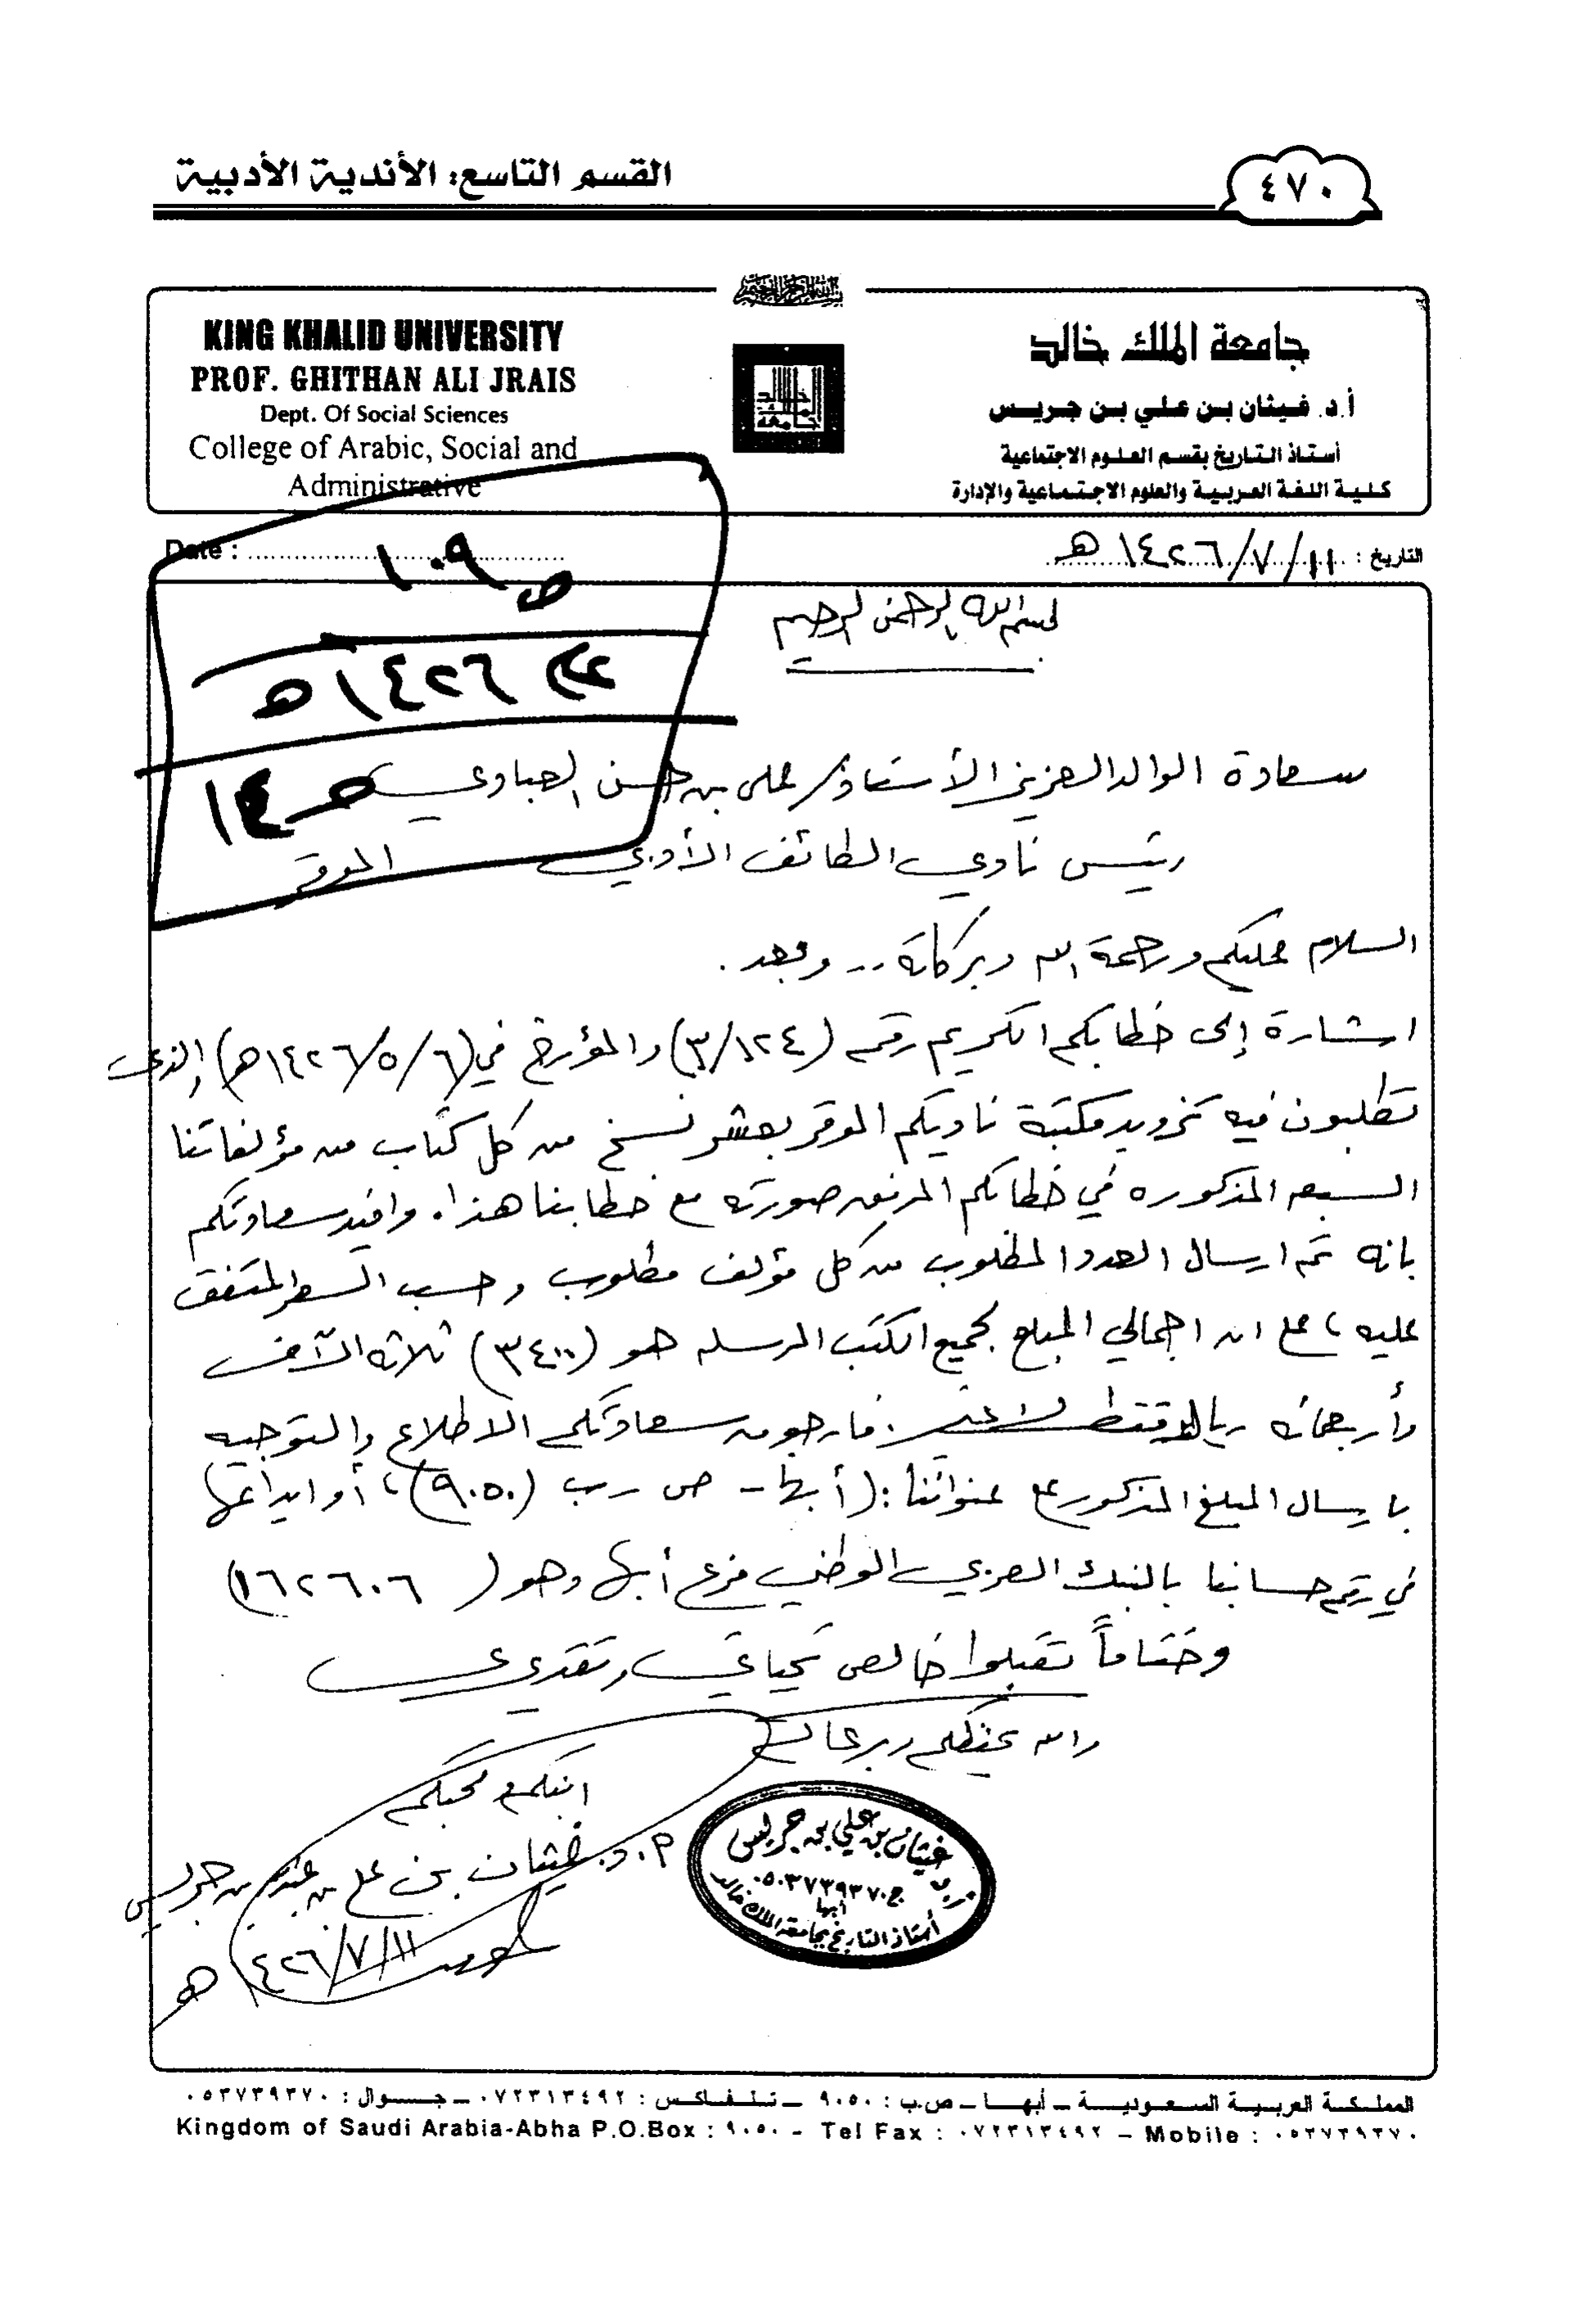 ٤٧٠
القسم التاسع: الأندية الأدبية
جامعة الملك خالد
أ.د. غيثان بن علي بن جريس
أستاذ التاريخ بقسم العلوم الاجتماعية
كلية اللغة العربية والعلوم الاجتماعية والإدارة
KING KHALID UNIVERSITY
PROF. GHITHAN ALI JRAIS
Dept. Of Social Sciences
College of Arabic, Social and
Administrative
التاريخ : ١١/٧/١٤٢٦هـ
Date :
ص ١٠٩
١٤٢٦هـ
١٤
بسم الله الرحمن الرحيم
سعادة الوالد العزيز الأستاذ/ علي بن حسن العبادي
رئيس نادي الطائف الأدبي الموقر
السلام عليكم ورحمة الله وبركاته .. وبعد .
اشارة إلى خطابكم الكريم رقم (٣/١٢٤) والمؤرخ في (٦/٥/١٤٢٦هـ) الذي
تطلبون فيه تزويد مكتبة ناديكم الموقر بعشر نسخ من كل كتاب من مؤلفاتنا
السبعه المذكوره في خطابكم المرفق صورته مع خطابنا هذا. وافيد سعادتكم
بانه تم ارسال العدد المطلوب من كل مؤلف مطلوب وحسب السعر المتفق
عليه، علماً ان اجمالي المبلغ لجميع الكتب المرسله هو (٣٤٠٠) ثلاثه الآف
وأربعمائه ريال فقط لاغير. فارجو من سعادتكم الاطلاع والتوجيه
بارسال المبلغ المذكور على عنواننا: (أبها - ص رب (٩٠٥٠)، أو ايداعها
في رقم حسابنا بالبنك العربي الوطني فرع أبها وهو (١٦٢٦٠٦)
وختاماً تقبلوا خالص تحياتي وتقديري
والله يحفظكم ويرعاكم
ابنكم ومحبكم
أ.د. غيثان بن علي بن عبدالله بن جريس
١١/٧/١٤٢٦هـ
غيثان بن علي بن جريس
ج٠٥٠٣٧٣٩٣٧٠
أبها
أستاذ التاريخ بجامعة الملك خالد
المملكة العربية السعودية – أبها – ص.ب : ٩٠٥٠ – تلفاكس : ٠٧٢٣١٣٤٩٢ – جوال : ٠٥٣٧٣٩٣٧٠
Kingdom of Saudi Arabia-Abha P.O.Box : ٩٠٥٠ - Tel Fax : ٠٧٢٣١٣٤٩٢ – Mobile : ٠٥٣٧٣٩٣٧٠